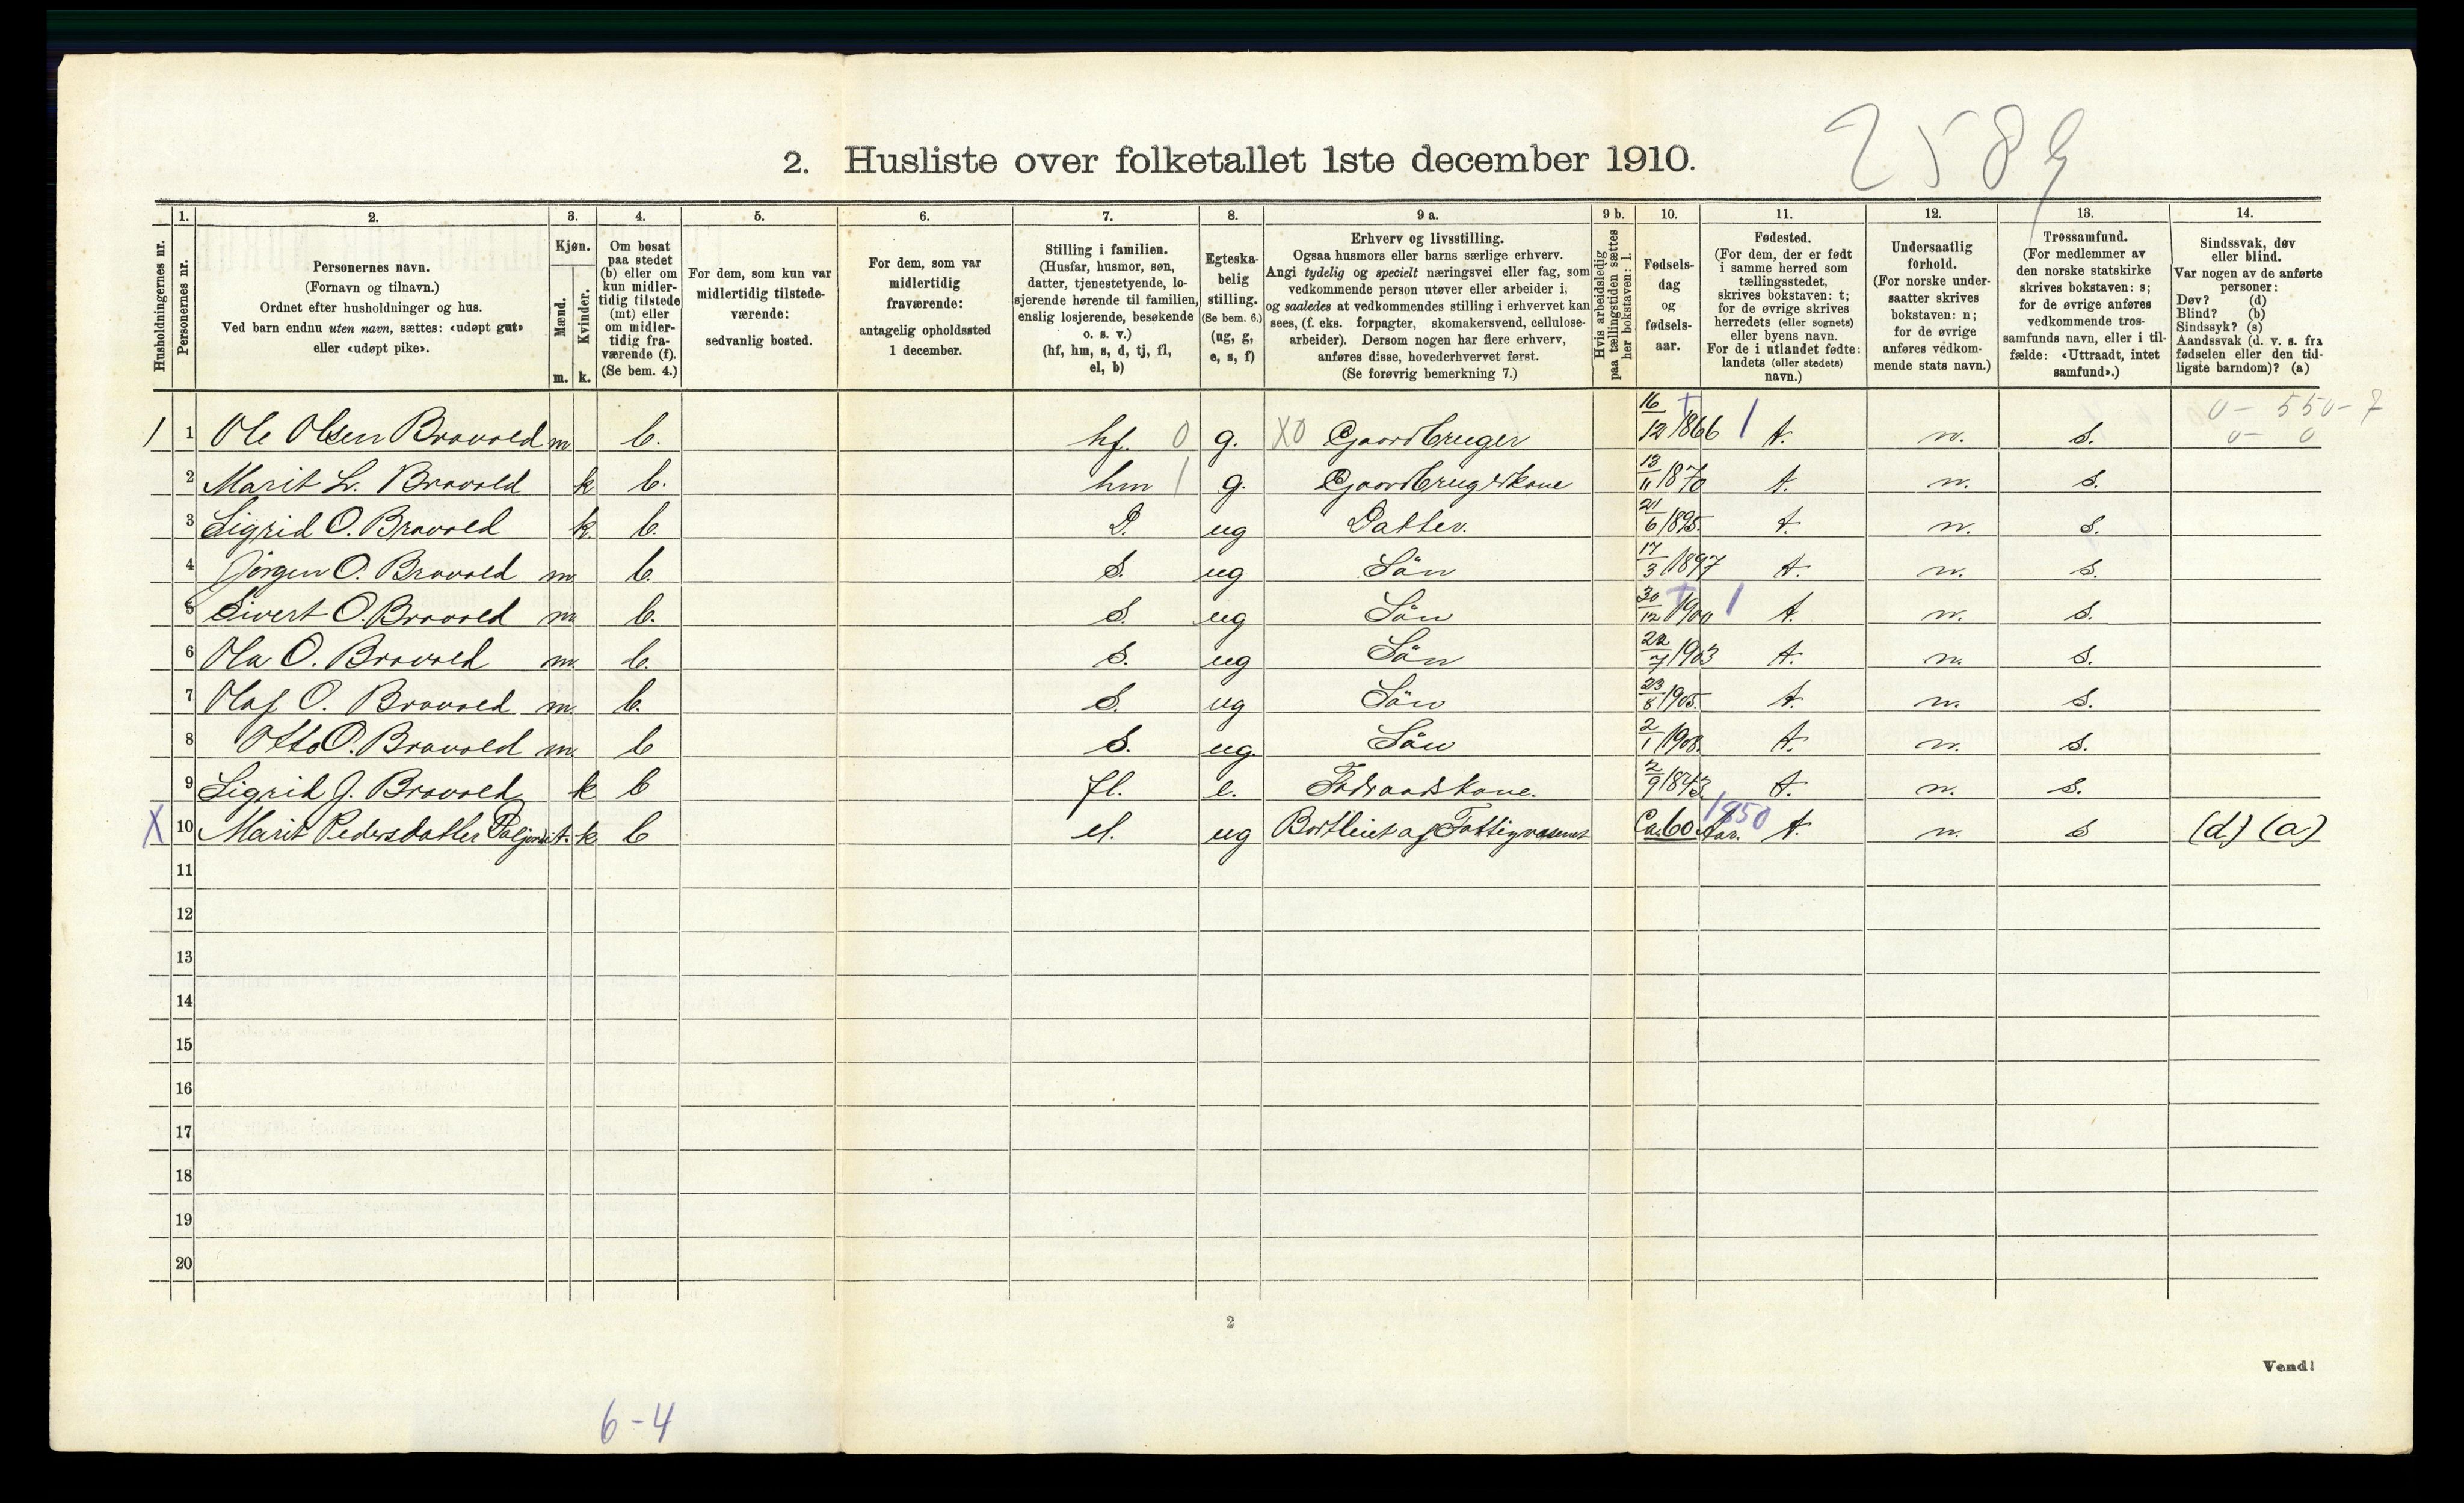 2589
2. Husliste over folketallet 1ste december 1910.
Husholdningernes nr.
1. Personernes nr.
2. Personernes navn.
(Fornavn og tilnavn.)
Ordnet efter husholdninger og hus.
Ved barn endnu uten navn, sættes: «udøpt gut»
eller «udøpt pike».
3. Kjøn.
Mænd. m.
Kvinder. k.
4. Om bosat
paa stedet
(b) eller om
kun midler-
tidig tilstede
(mt) eller
om midler-
tidig fra-
værende (f).
(Se bem. 4.)
5. For dem, som kun var
midlertidig tilstede-
værende:
sedvanlig bosted.
6. For dem, som var
midlertidig
fraværende:
antagelig opholdssted
1 december.
7. Stilling i familien.
(Husfar, husmor, søn,
datter, tjenestetyende, lo-
sjerende hørende til familien,
enslig losjerende, besøkende
o. s. v.)
(hf, hm, s, d, tj, fl,
el, b)
8. Egteska-
belig
stilling.
(Se bem. 6.)
(ug, g,
e, s, f)
9 a. Erhverv og livsstilling.
Ogsaa husmors eller barns særlige erhverv.
Angi tydelig og specielt næringsvei eller fag, som
vedkommende person utøver eller arbeider i,
og saaledes at vedkommendes stilling i erhvervet kan
sees, (f. eks. forpagter, skomakersvend, cellulose-
arbeider). Dersom nogen har flere erhverv,
anføres disse, hovederhvervet først.
(Se forøvrig bemerkning 7.)
9 b. Hvis arbeidsledig
paa tællingstiden sættes
her bokstaven: l.
10. Fødsels-
dag
og
fødsels-
aar.
11. Fødested.
(For dem, der er født
i samme herred som
tællingsstedet,
skrives bokstaven: t;
for de øvrige skrives
herredets (eller sognets)
eller byens navn.
For de i utlandet fødte:
landets (eller stedets)
navn.)
12. Undersaatlig
forhold.
(For norske under-
saatter skrives
bokstaven: n;
for de øvrige
anføres vedkom-
mende stats navn.)
13. Trossamfund.
(For medlemmer av
den norske statskirke
skrives bokstaven: s;
for de øvrige anføres
vedkommende tros-
samfunds navn, eller i til-
fælde: «Uttraadt, intet
samfund».)
14. Sindssvak, døv
eller blind.
Var nogen av de anførte
personer:
Døv? (d)
Blind? (b)
Sindssyk? (s)
Aandssvak (d. v. s. fra
fødselen eller den tid-
ligste barndom)? (a)
0 - 550 - 7
0 - 0
1 1 Ole Olsen Bravold m b. hf. 0 g. X0 Gaardbruger 16/12 1866 1 t. n. s.
2 Marit L. Bravold k b. hm 1 g. Gaardbrugerkone 13/11 1870 t. n. s.
3 Sigrid O. Bravold k. b. D. ug Datter. 21/6 1895. t. n. s.
4 Jörgen O. Bravold m. b. S. ug Sön 17/3 1897 t. n. s.
5 Sivert O. Bravold m. b. S. ug Sön 30/12 1900 1 t. n. s.
6 Ola O. Bravold m. b. S. ug Sön 22/7 1903 t. n. s.
7 Olaf O. Bravold m. b. S. ug Sön 23/8 1905. t. n. s.
8 Otto O. Bravold m. b S. ug. Sön 2/1 1908. t. n. s.
9 Sigrid J. Bravold k b fl. e. Födraadskone. 2/9 1843. t. n. s.
X 10 Marit Pedersdatter k b el. ug Bortleiet af Fattigvæsenet Ca. 60 Aar. 1850 t. n. s (d) (a)
11
12
13
14
15
16
17
18
19
20
2
Vend!
6-4